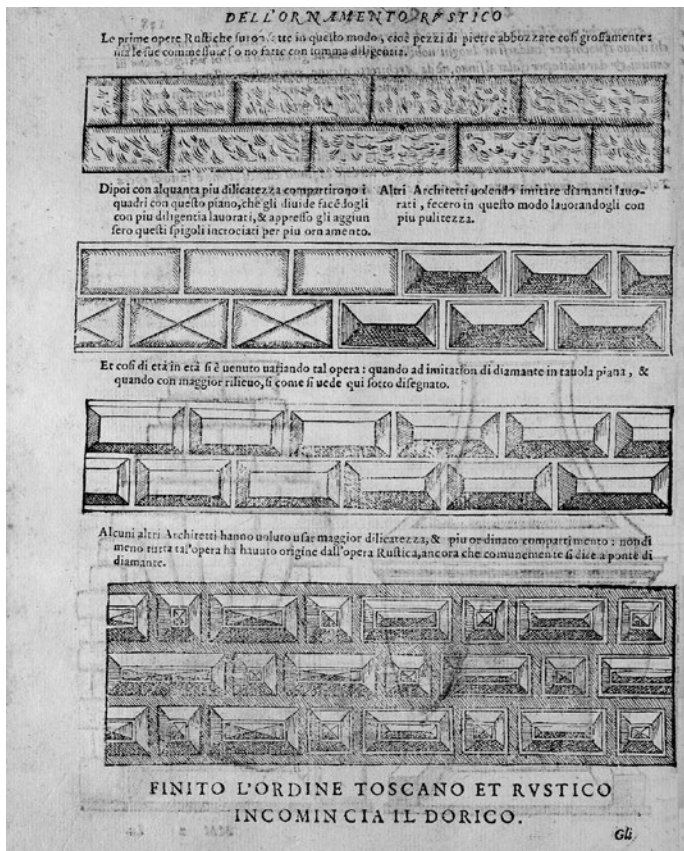 DELL'ORNAMENTO RVSTICO
Le prime opere Rustiche furon fatte in questo modo, cioè pezzi di pietre abbozzate cosi grossamente:
ma le sue commessure sono fatte con somma diligentia.
Dipoi con alquanta piu dilicatezza compartirono i
quadri con questo piano, che gli diuide facēdogli
con piu diligentia lauorati, & appresso gli aggiun
sero questi spigoli incrociati per piu ornamento.
Altri Architetti uolendo imitare diamanti lauo-
rati, fecero in questo modo lauorandogli con
piu pulitezza.
Et cosi di età in età si è uenuto uariando tal opera: quando ad imitation di diamante in tauola piana, &
quando con maggior rilieuo, si come si uede qui sotto disegnato.
Alcuni altri Architetti hanno uoluto usar maggior dilicatezza, & piu ordinato compartimento: nondi
meno tutta tal'opera ha hauuto origine dall'opera Rustica, ancora che comunemente si dice a ponte di
diamante.
FINITO L'ORDINE TOSCANO ET RVSTICO
INCOMINCIA IL DORICO.
Gli